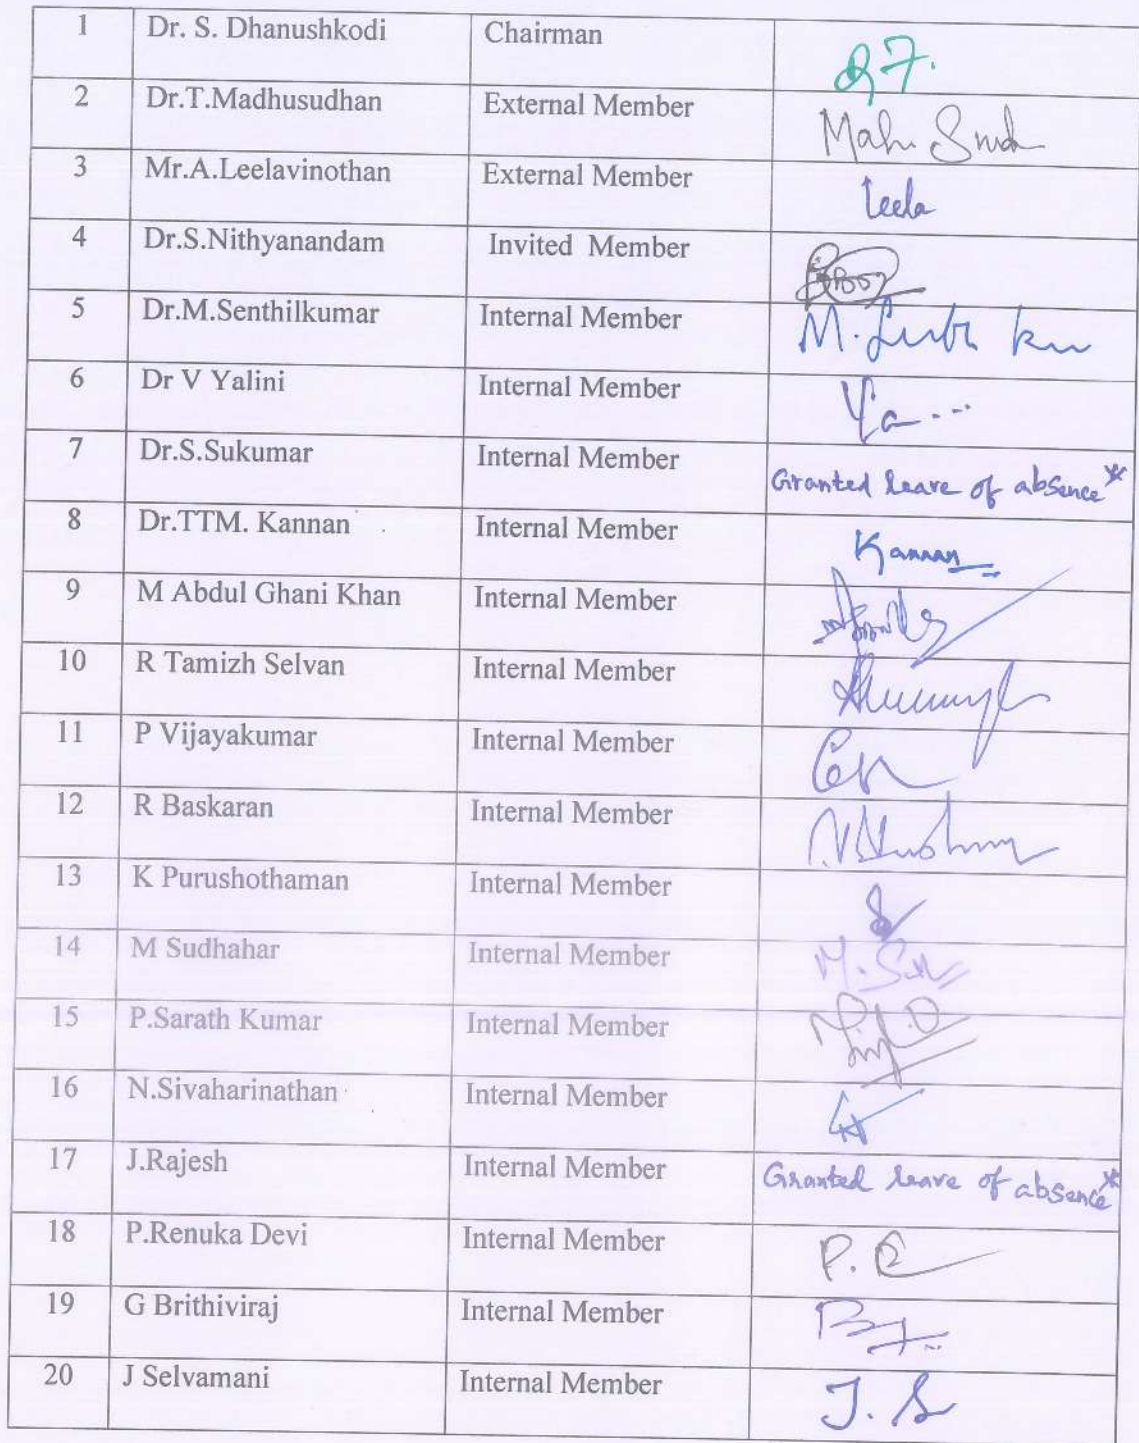 1 Dr. S. Dhanushkodi Chairman
2 Dr.T.Madhusudhan External Member
3 Mr.A.Leelavinothan External Member Leela
4 Dr.S.Nithyanandam Invited Member
5 Dr.M.Senthilkumar Internal Member
6 Dr V Yalini Internal Member
7 Dr.S.Sukumar Internal Member Granted leave of absence*
8 Dr.TTM. Kannan Internal Member Kannan
9 M Abdul Ghani Khan Internal Member
10 R Tamizh Selvan Internal Member
11 P Vijayakumar Internal Member
12 R Baskaran Internal Member
13 K Purushothaman Internal Member
14 M Sudhahar Internal Member
15 P.Sarath Kumar Internal Member
16 N.Sivaharinathan Internal Member
17 J.Rajesh Internal Member Granted leave of absence*
18 P.Renuka Devi Internal Member
19 G Brithiviraj Internal Member
20 J Selvamani Internal Member J. S